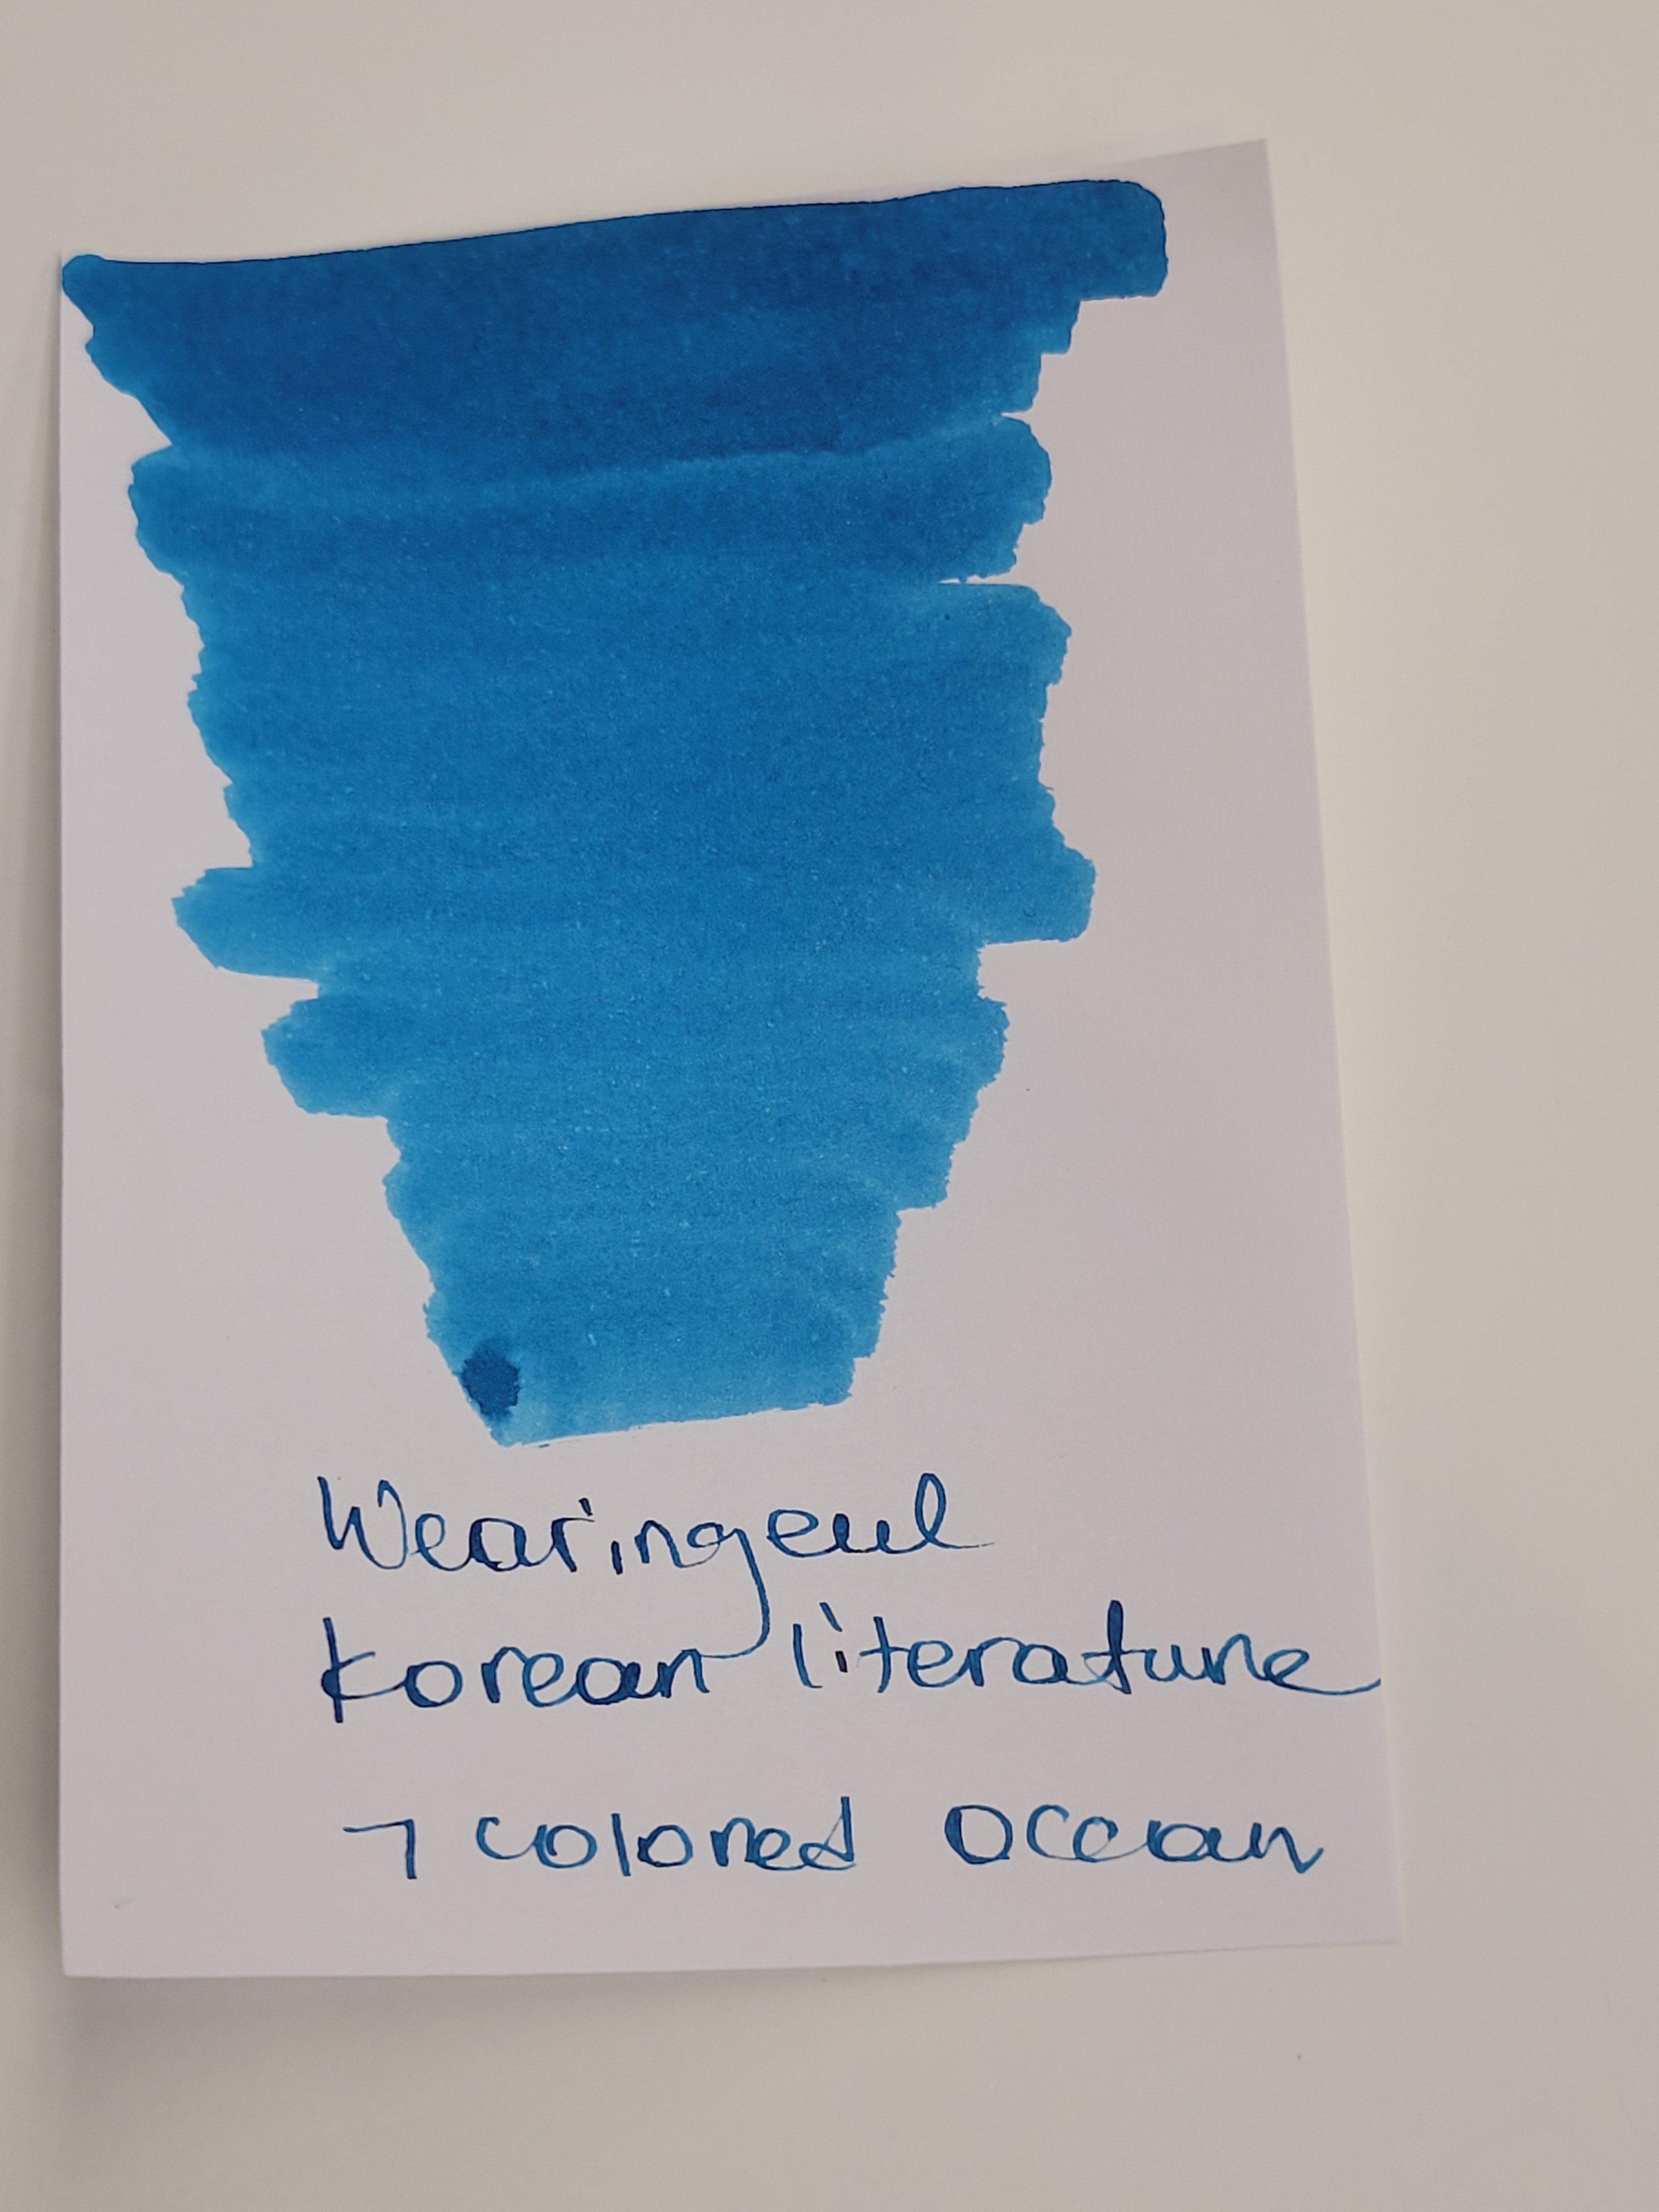 Wearingeul
Korean literature
7 colored Ocean